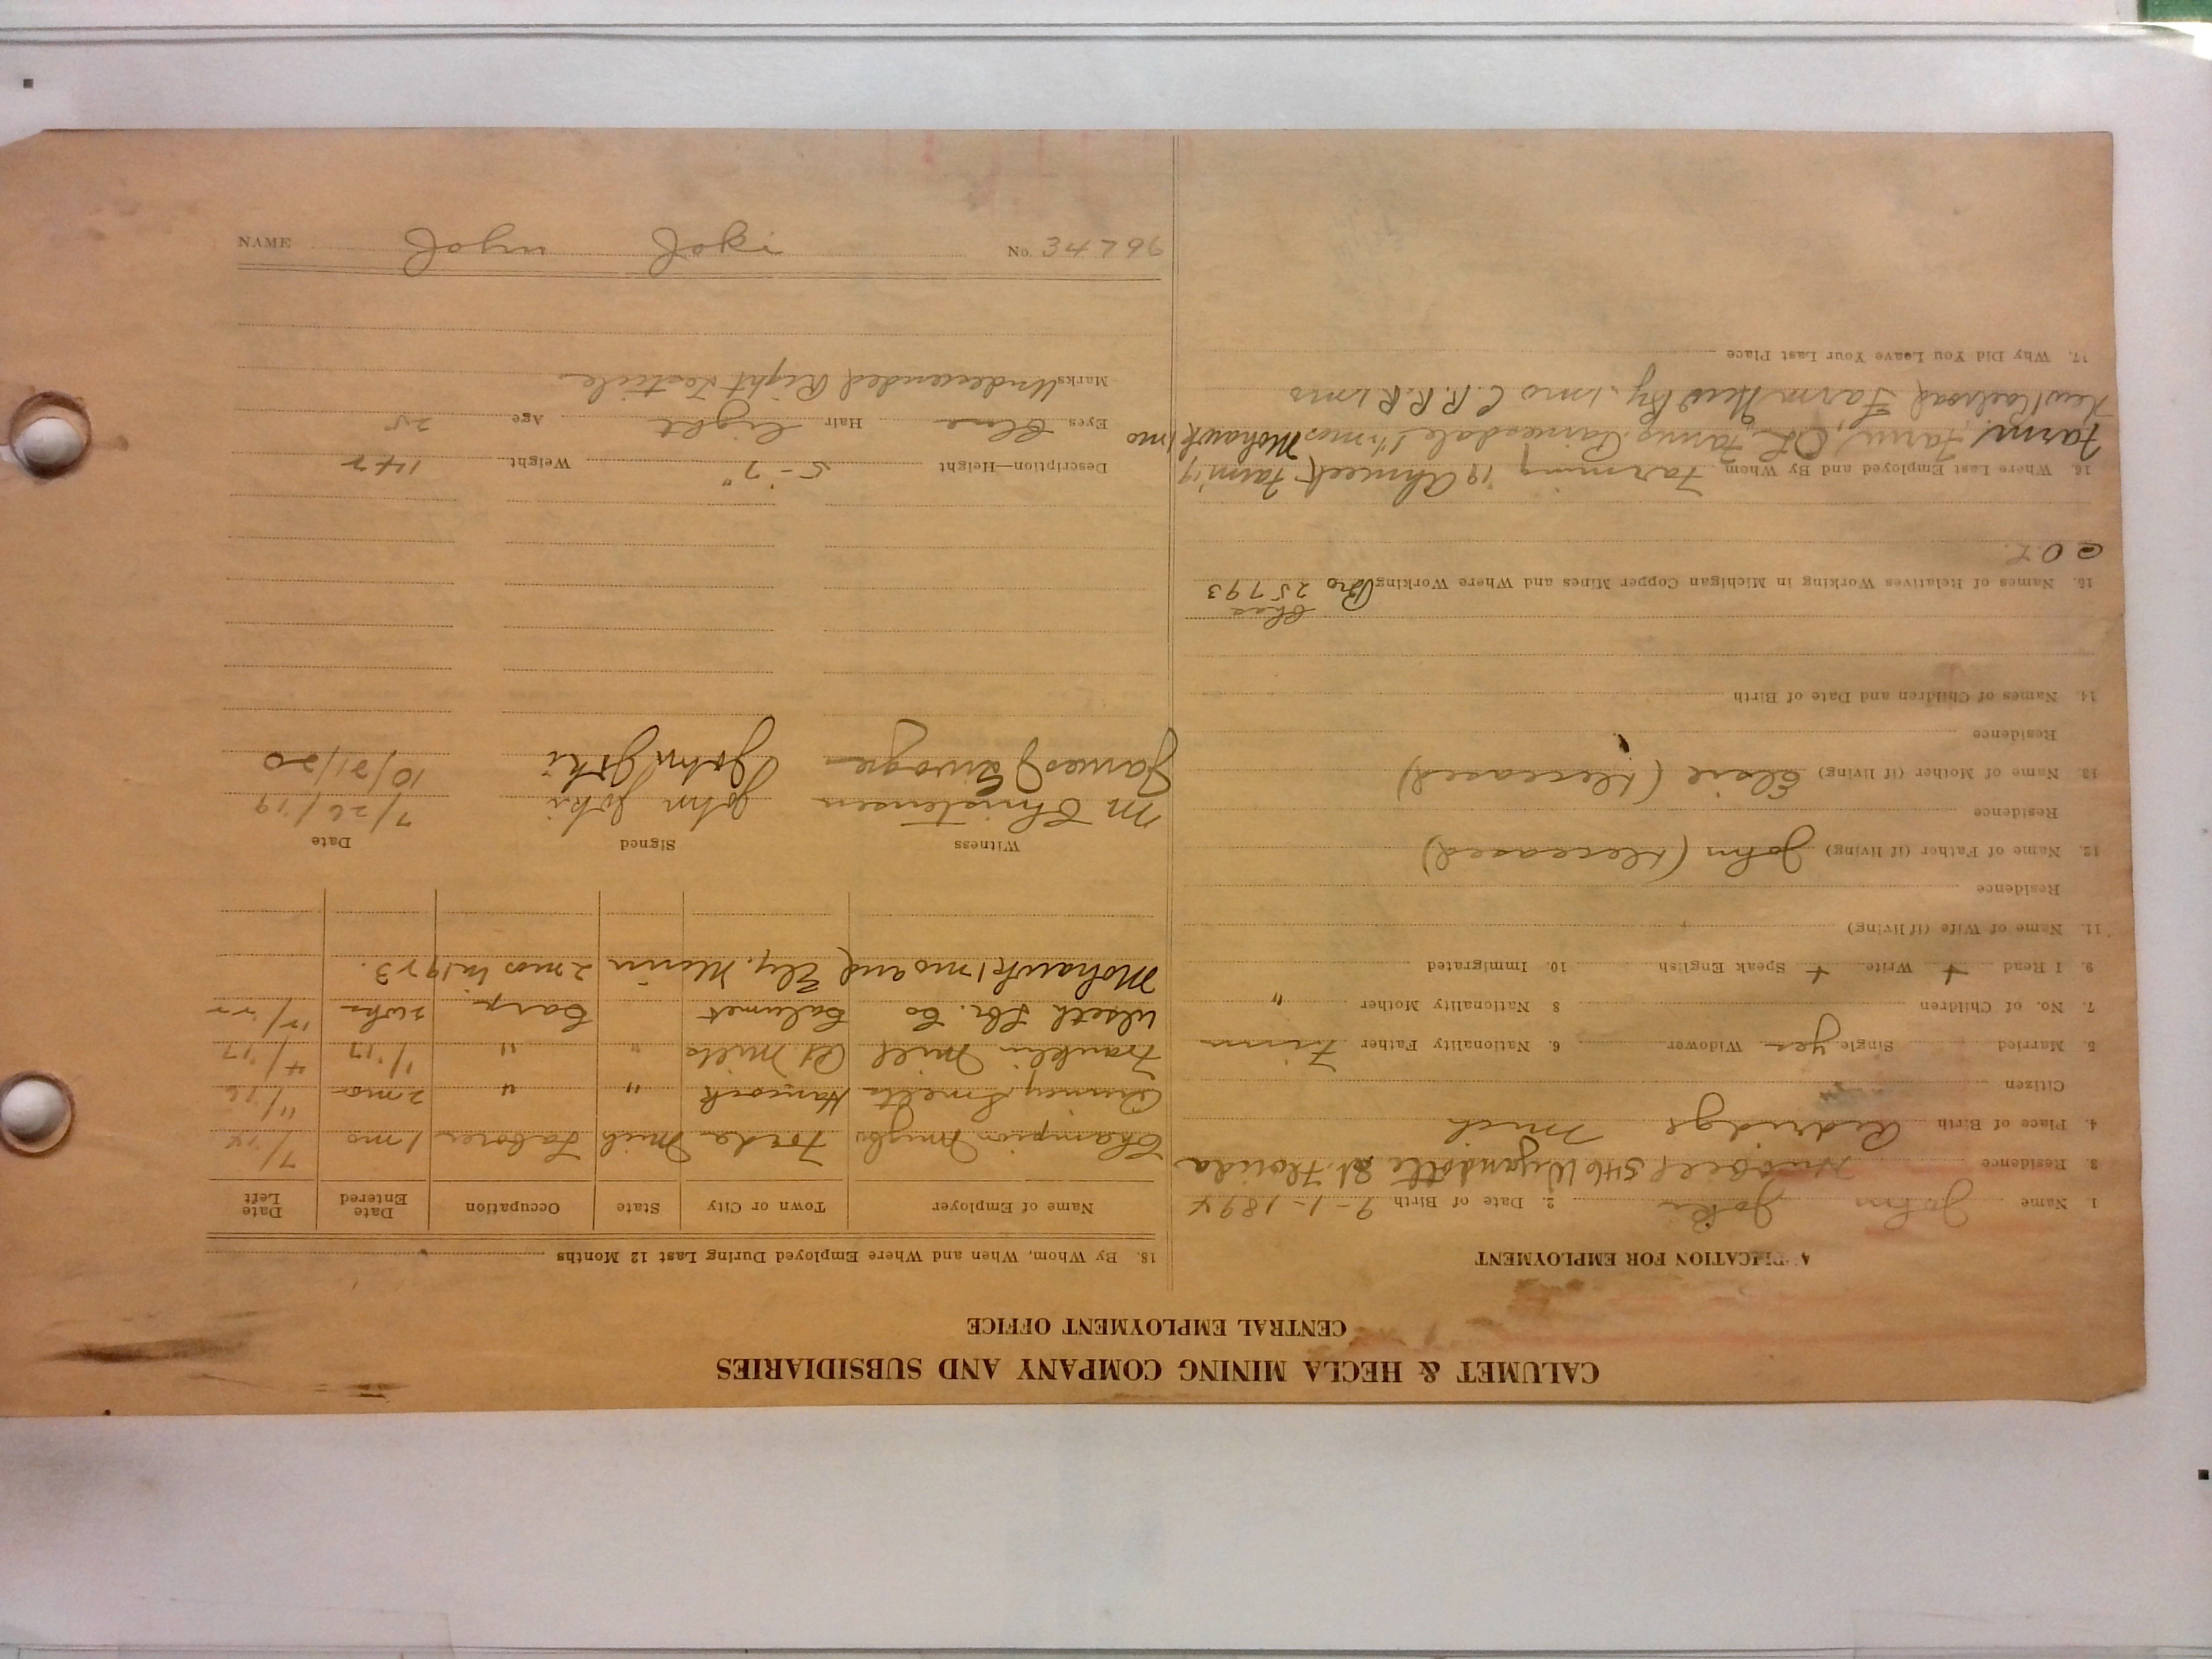 CALUMET & HECLA MINING COMPANY AND SUBSIDIARIES
CENTRAL EMPLOYMENT OFFICE
APPLICATION FOR EMPLOYMENT
1 Name John Joki 2. Date of Birth 9-1-1894
3. Residence Hubbell 546 Wyandotte St. Florida
4. Place of Birth Redridge Mich
Citizen
5. Married Single yes Widower 6. Nationality Father Finn
7. No. of Children 8 Nationality Mother "
9. I Read + Write + Speak English 10. Immigrated
11. Name of Wife (if living)
Residence
12. Name of Father (if living) John (Deceased)
Residence
13. Name of Mother (if living) Elsie (Deceased)
Residence
14. Names of Children and Date of Birth
Chas
15. Names of Relatives Working in Michigan Copper Mines and Where Working Bro 25793
16. Where Last Employed and By Whom Farming '19 Ahmeek Farm'g
Farm, Farm, Farm, 1 mos Mohawk 1 mo
Railroad, Farm, By. 1 mo C.R.R.R 1 ms
17. Why Did You Leave Your Last Place
18. By Whom, When and Where Employed During Last 12 Months
Name of Employer Town or City State Occupation Date Entered Date Left
Champion Freda Mich Laborer 1 mo 7/'14
Quincy Smelter Hancock " " 2 mo 11/'16
Franklin Mill Pt Mills " " 1/'17 4/'17
Ulseth Lbr. Co Calumet Carp. 2 wks 12/22
Mohawk 1 mo and Ely. Minn 2 mos in 1923.
Witness Signed Date
M Christensen John Joki 7/26/19
James Savage John Joki 10/21/20
Description—Height 5-'7" Weight 142
Eyes Blue Hair Light Age 25
Marks Undescended Right Testicle
NAME John Joki No. 34796